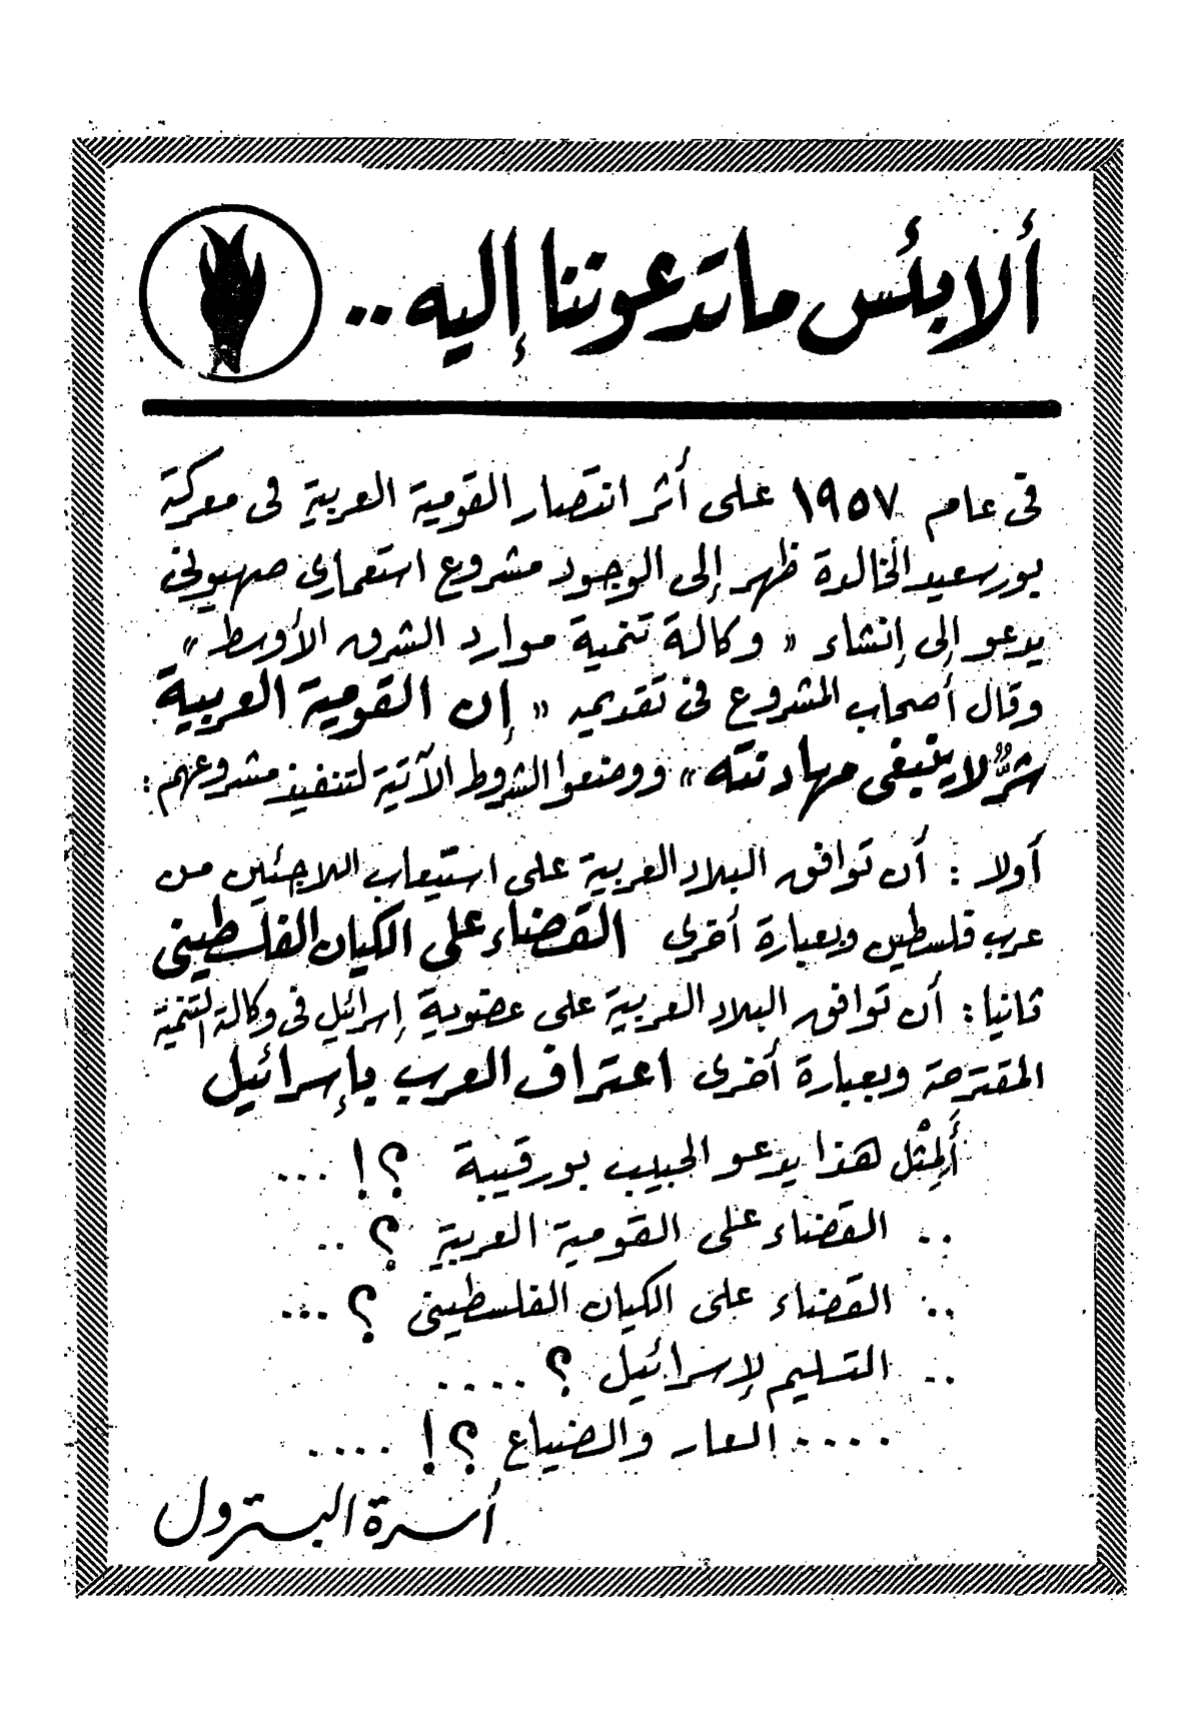 ألا بئس ما تدعوننا إليه ..
فى عام ١٩٥٧ على أثر انتصار القومية العربية فى معركة
بورسعيد الخالدة ظهر إلى الوجود مشروع استعمارى صهيونى
يدعو إلى إنشاء « وكالة تنمية موارد الشرق الأوسط »
وقال أصحاب المشروع فى تقديمه « إن القومية العربية
شرٌّ لا ينبغى مهادنته » ووضعوا الشروط الآتية لتنفيذ مشروعهم :
أولا : أن توافق البلاد العربية على استيعاب اللاجئين من
عرب فلسطين وبعبارة أخرى القضاء على الكيان الفلسطينى
ثانيا : أن توافق البلاد العربية على عضوية إسرائيل فى وكالة التنمية
المقترحة وبعبارة أخرى اعتراف العرب بإسرائيل
أَلِمِثْل هذا يدعو الحبيب بورقيبة ؟! ...
.. القضاء على القومية العربية ؟ ..
.. القضاء على الكيان الفلسطينى ؟ ...
.. التسليم لإسرائيل ؟ ....
.... العار والضياع ؟! ....
أسرة البترول